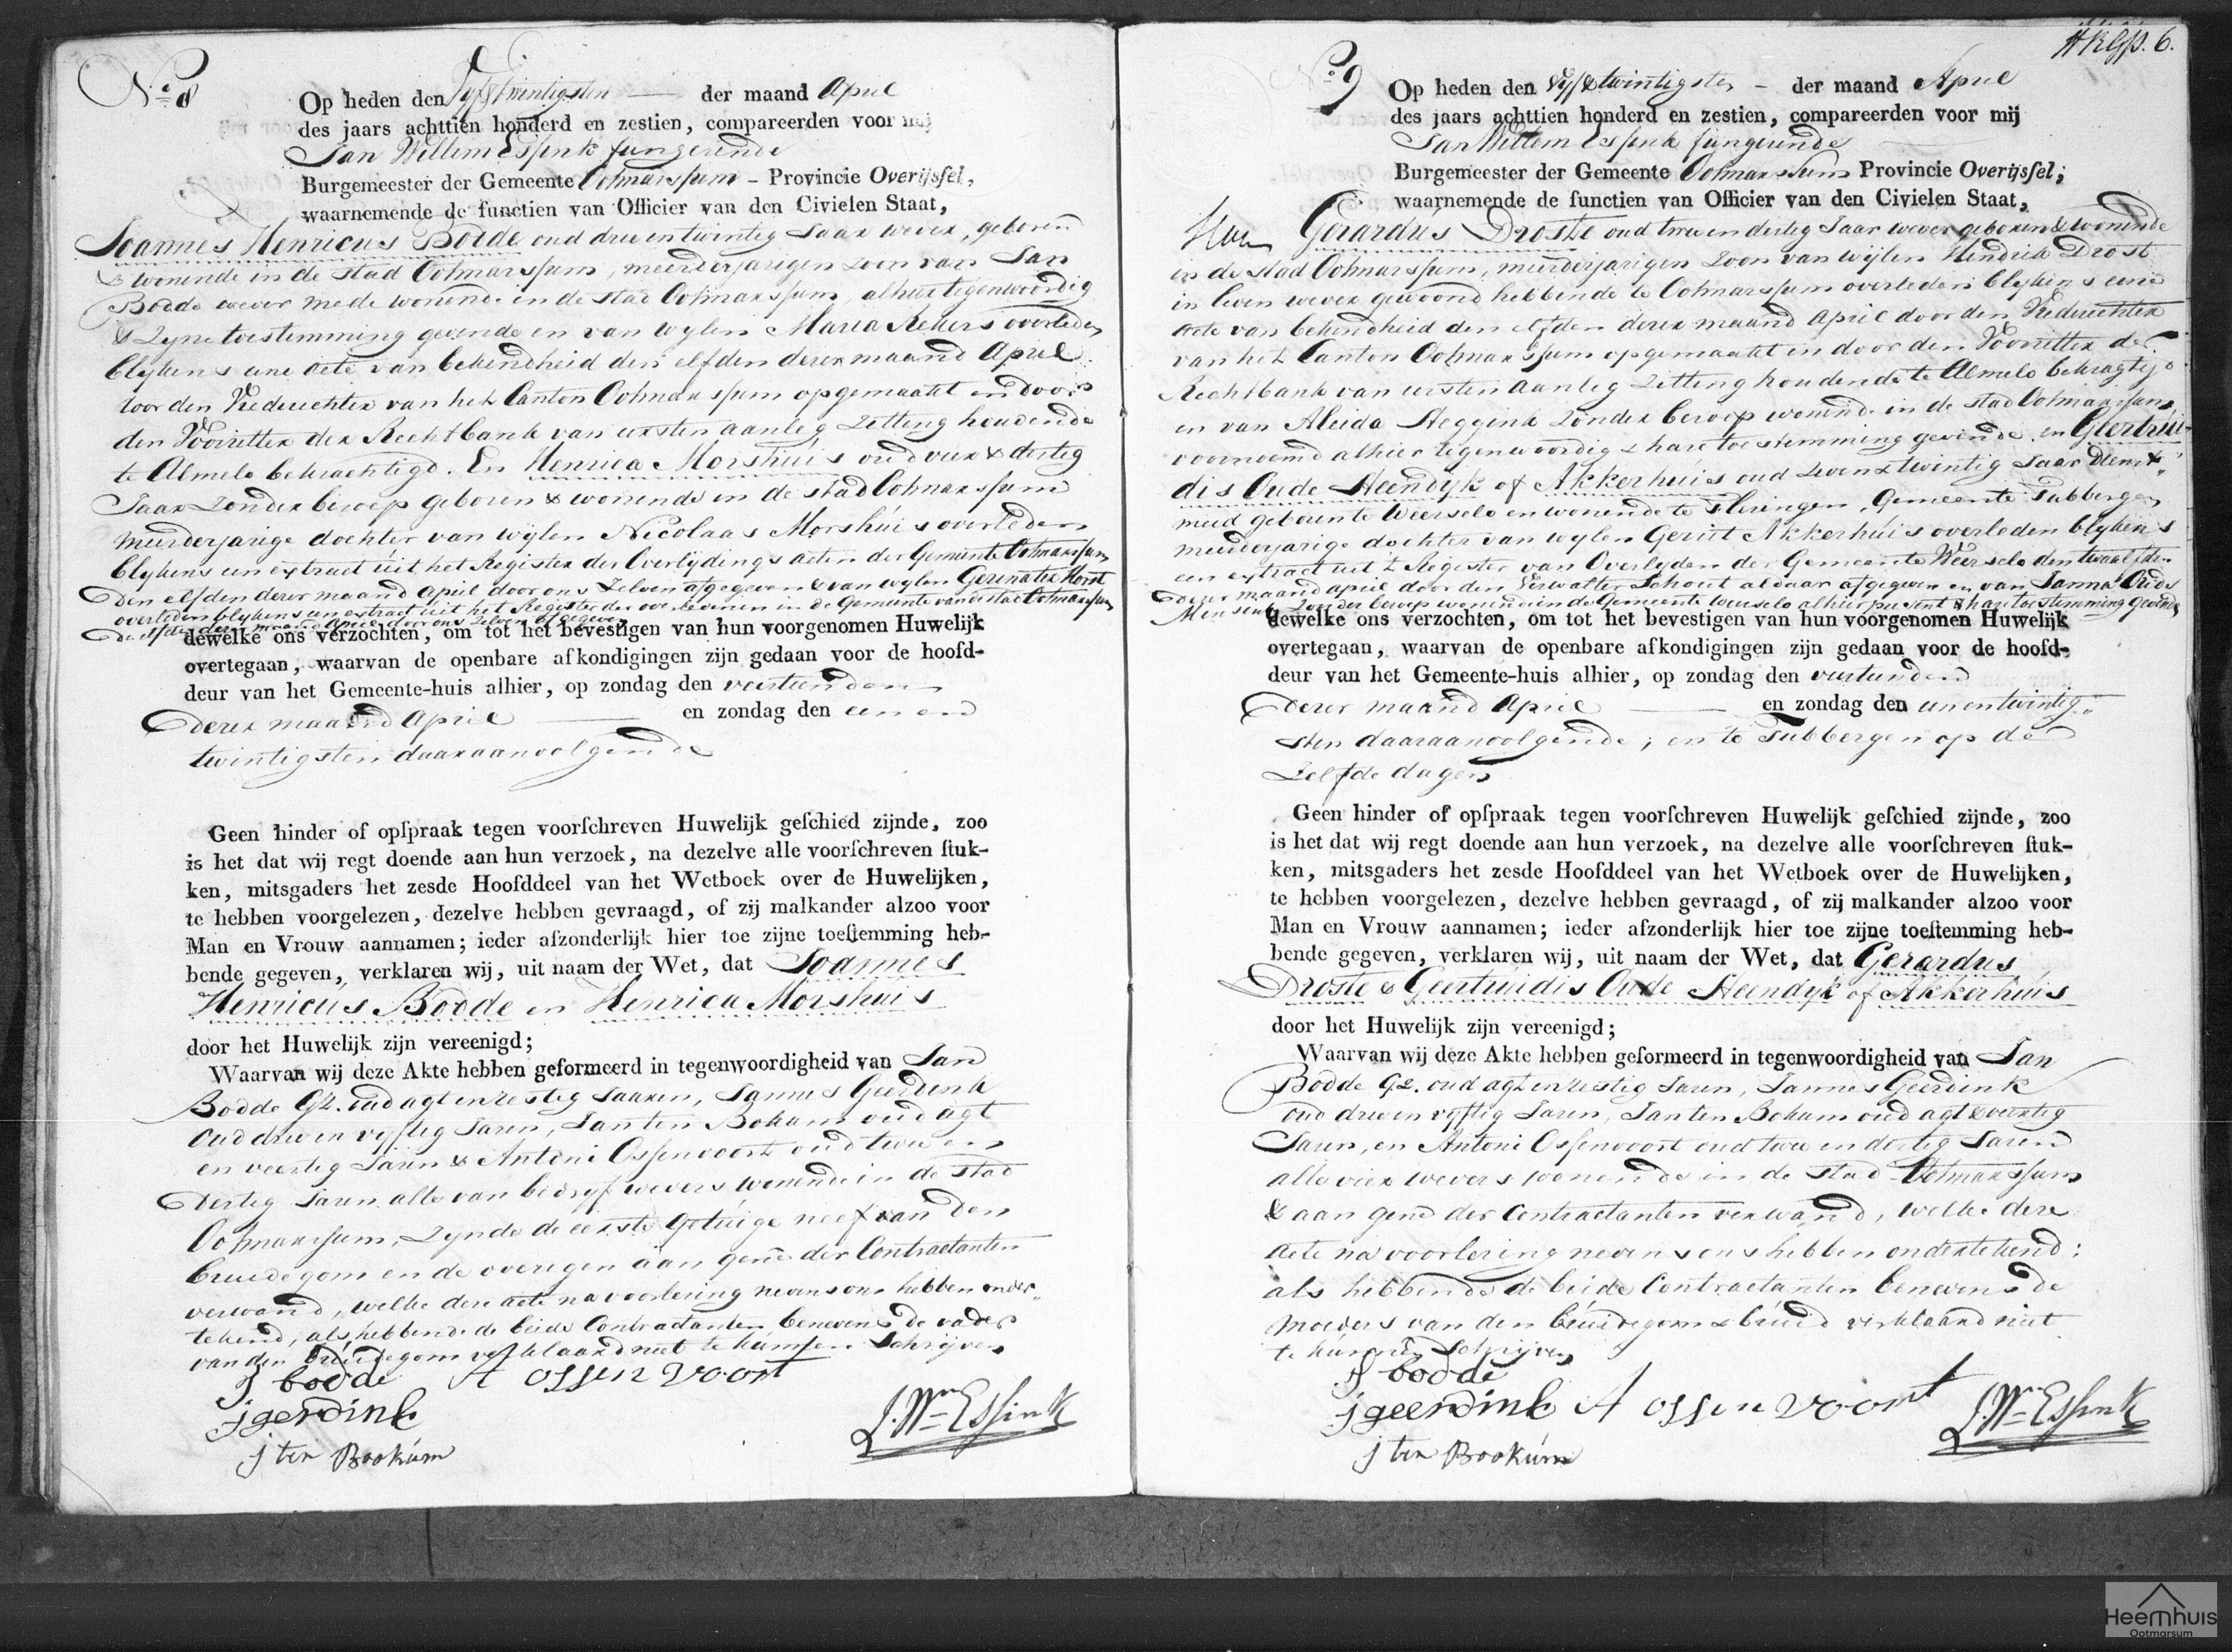 No. 8
Op heden den Vyf & twintigsten — der maand April
des jaars achttien honderd en zestien, compareerden voor mij
Jan Willem Essink fungerende
Burgemeester der Gemeente Ootmarssum - Provincie Overijssel,
waarnemende de functien van Officier van den Civielen Staat,
Joannes Henricus Bodde oud drie en twintig Jaar wever, geboren
& wonende in de stad Ootmarssum, meerderjarigen zoon van Jan
Bodde wever mede wonende in de stad Ootmarssum alhier tegenwoordig
& zyne toestemming gevende en van wylen Maria Rekers overleden
blykens eene acte van bekendheid den elfden derer maand April
voor den Vrederechter van het Canton Ootmarssum opgemaakt en door
den Voorzitter der Rechtbank van eersten aanleg zitting houdende
te Almelo bekrachtigd. En Henrica Morshuis oud vier & dertig
Jaar zonder beroep geboren & wonende in de stad Ootmarssum
meerderjarige dochter van wylen Nicolaas Morshuis overleden
blykens een extract uit het Register der Overlydings acten der Gemeente Ootmarssum
den elfden derer maand April door ons zelven afgegeven & van wylen Horst
overleden blykens een extract uit het Register der overledenen in de Gemeente van de stad Ootmarssum
den elfden derer maand April door ons zelven afgegeven
dewelke ons verzochten, om tot het bevestigen van hun voorgenomen Huwelijk
overtegaan, waarvan de openbare afkondigingen zijn gedaan voor de hoofd-
deur van het Gemeente-huis alhier, op zondag den veertienden
derer maand April — en zondag den een en
twintigsten daaraanvolgende
Geen hinder of opſpraak tegen voorſchreven Huwelijk geſchied zijnde, zoo
is het dat wij regt doende aan hun verzoek, na dezelve alle voorſchreven ſtuk-
ken, mitsgaders het zesde Hoofddeel van het Wetboek over de Huwelijken,
te hebben voorgelezen, dezelve hebben gevraagd, of zij malkander alzoo voor
Man en Vrouw aannamen; ieder afzonderlijk hier toe zijne toeſtemming heb-
bende gegeven, verklaren wij, uit naam der Wet, dat Joannes
Henricus Bodde en Henrica Morshuis
door het Huwelijk zijn vereenigd;
Waarvan wij deze Akte hebben geformeerd in tegenwoordigheid van Jan
Bodde Gz. oud agt en zestig Jaaren, Jannes Geerdink
oud drie en vyftig Jaren, Jan ten Bokum oud agt
en veertig Jaren & Antoni Ossenvoort oud twee en
dertig Jaren alle van bedryf wevers wonende in de stad
Ootmarssum, zynde de eerste getuige neef van den
bruidegom en de overigen aan gene der Contractanten
verwand, welke dere acte na voorlezing nevens ons hebben onder-
tekend, als hebbende de beide Contractanten benevens de vader
van den bruidegom verklaard niet te kunnen schrijven
J bodde A ossenvoort
j gerdink
J. Wm Essink
j ten Bookum
HKGP. 6.
No. 9
Op heden den Vyf & twintigsten - der maand April
des jaars achttien honderd en zestien, compareerden voor mij
Jan Willem Essink fungerende
Burgemeester der Gemeente Ootmarssum Provincie Overijssel;
waarnemende de functien van Officier van den Civielen Staat,
Gerardus Droste oud twee en dertig Jaar wever geboren & wonende
in de stad Ootmarssum, meerderjarigen zoon van wijlen Hendrik Drost
in leven wever gewoond hebbende te Ootmarssum overleden blykens eene
acte van bekendheid den elfden derer maand April door den Vrederechter
van het Canton Ootmarssum opgemaakt en door den Voorzitter der
Rechtbank van eersten aanleg zitting houdende te Almelo bekragtigd
en van Aleida Heggink zonder beroep wonende in de stad Ootmarssum
voornoemd alhier tegenwoordig & hare toestemming gevende. en Geertrui-
dis Oude Heendyk of Akkerhuis oud zeven & twintig Jaar dienst-
meid geboren te Weerselo en wonende te Fleringen, Gemeente Tubbergen
meerderjarige dochter van wylen Gerrit Akkerhuis overleden blykens
een extract uit 't Register van Overlyden der Gemeente Weerselo den twaalfden
derer maand april door den Verwalter Schout aldaar afgegeven en van Janna Oude
Mensink zonder beroep wonende in de Gemeente Weerselo alhier present & hare toestemming gevende
dewelke ons verzochten, om tot het bevestigen van hun voorgenomen Huwelijk
overtegaan, waarvan de openbare afkondigingen zijn gedaan voor de hoofd-
deur van het Gemeente-huis alhier, op zondag den veertienden
derer maand April — en zondag den een en twintig-
sten daaraanvolgende; en te Tubbergen op de
zelfde dagen
Geen hinder of opſpraak tegen voorſchreven Huwelijk geſchied zijnde, zoo
is het dat wij regt doende aan hun verzoek, na dezelve alle voorſchreven ſtuk-
ken, mitsgaders het zesde Hoofddeel van het Wetboek over de Huwelijken,
te hebben voorgelezen, dezelve hebben gevraagd, of zij malkander alzoo voor
Man en Vrouw aannamen; ieder afzonderlijk hier toe zijne toeſtemming heb-
bende gegeven, verklaren wij, uit naam der Wet, dat Gerardus
Droste & Geertruidis Oude Heendyk of Akkerhuis
door het Huwelijk zijn vereenigd;
Waarvan wij deze Akte hebben geformeerd in tegenwoordigheid van Jan
Bodde Gz. oud agt en zestig Jaren, Jannes Geerdink
oud drie en vyftig Jaren, Jan ten Bokum oud agt & veertig
Jaren, en Antoni Ossenvoort oud twee en dertig Jaren
alle vier wevers wonende in de stad Ootmarssum
& aan gene der Contractanten verwand, welke dere
acte na voorlezing nevens ons hebben ondertekend;
als hebbende de beide Contractanten benevens de
moeders van den bruidegom & bruid verklaard niet
te kunnen schrijven
J bodde
j geerdink A ossenvoort
J. Wm Essink
j ten Bookum
Heemhuis
Ootmarsum